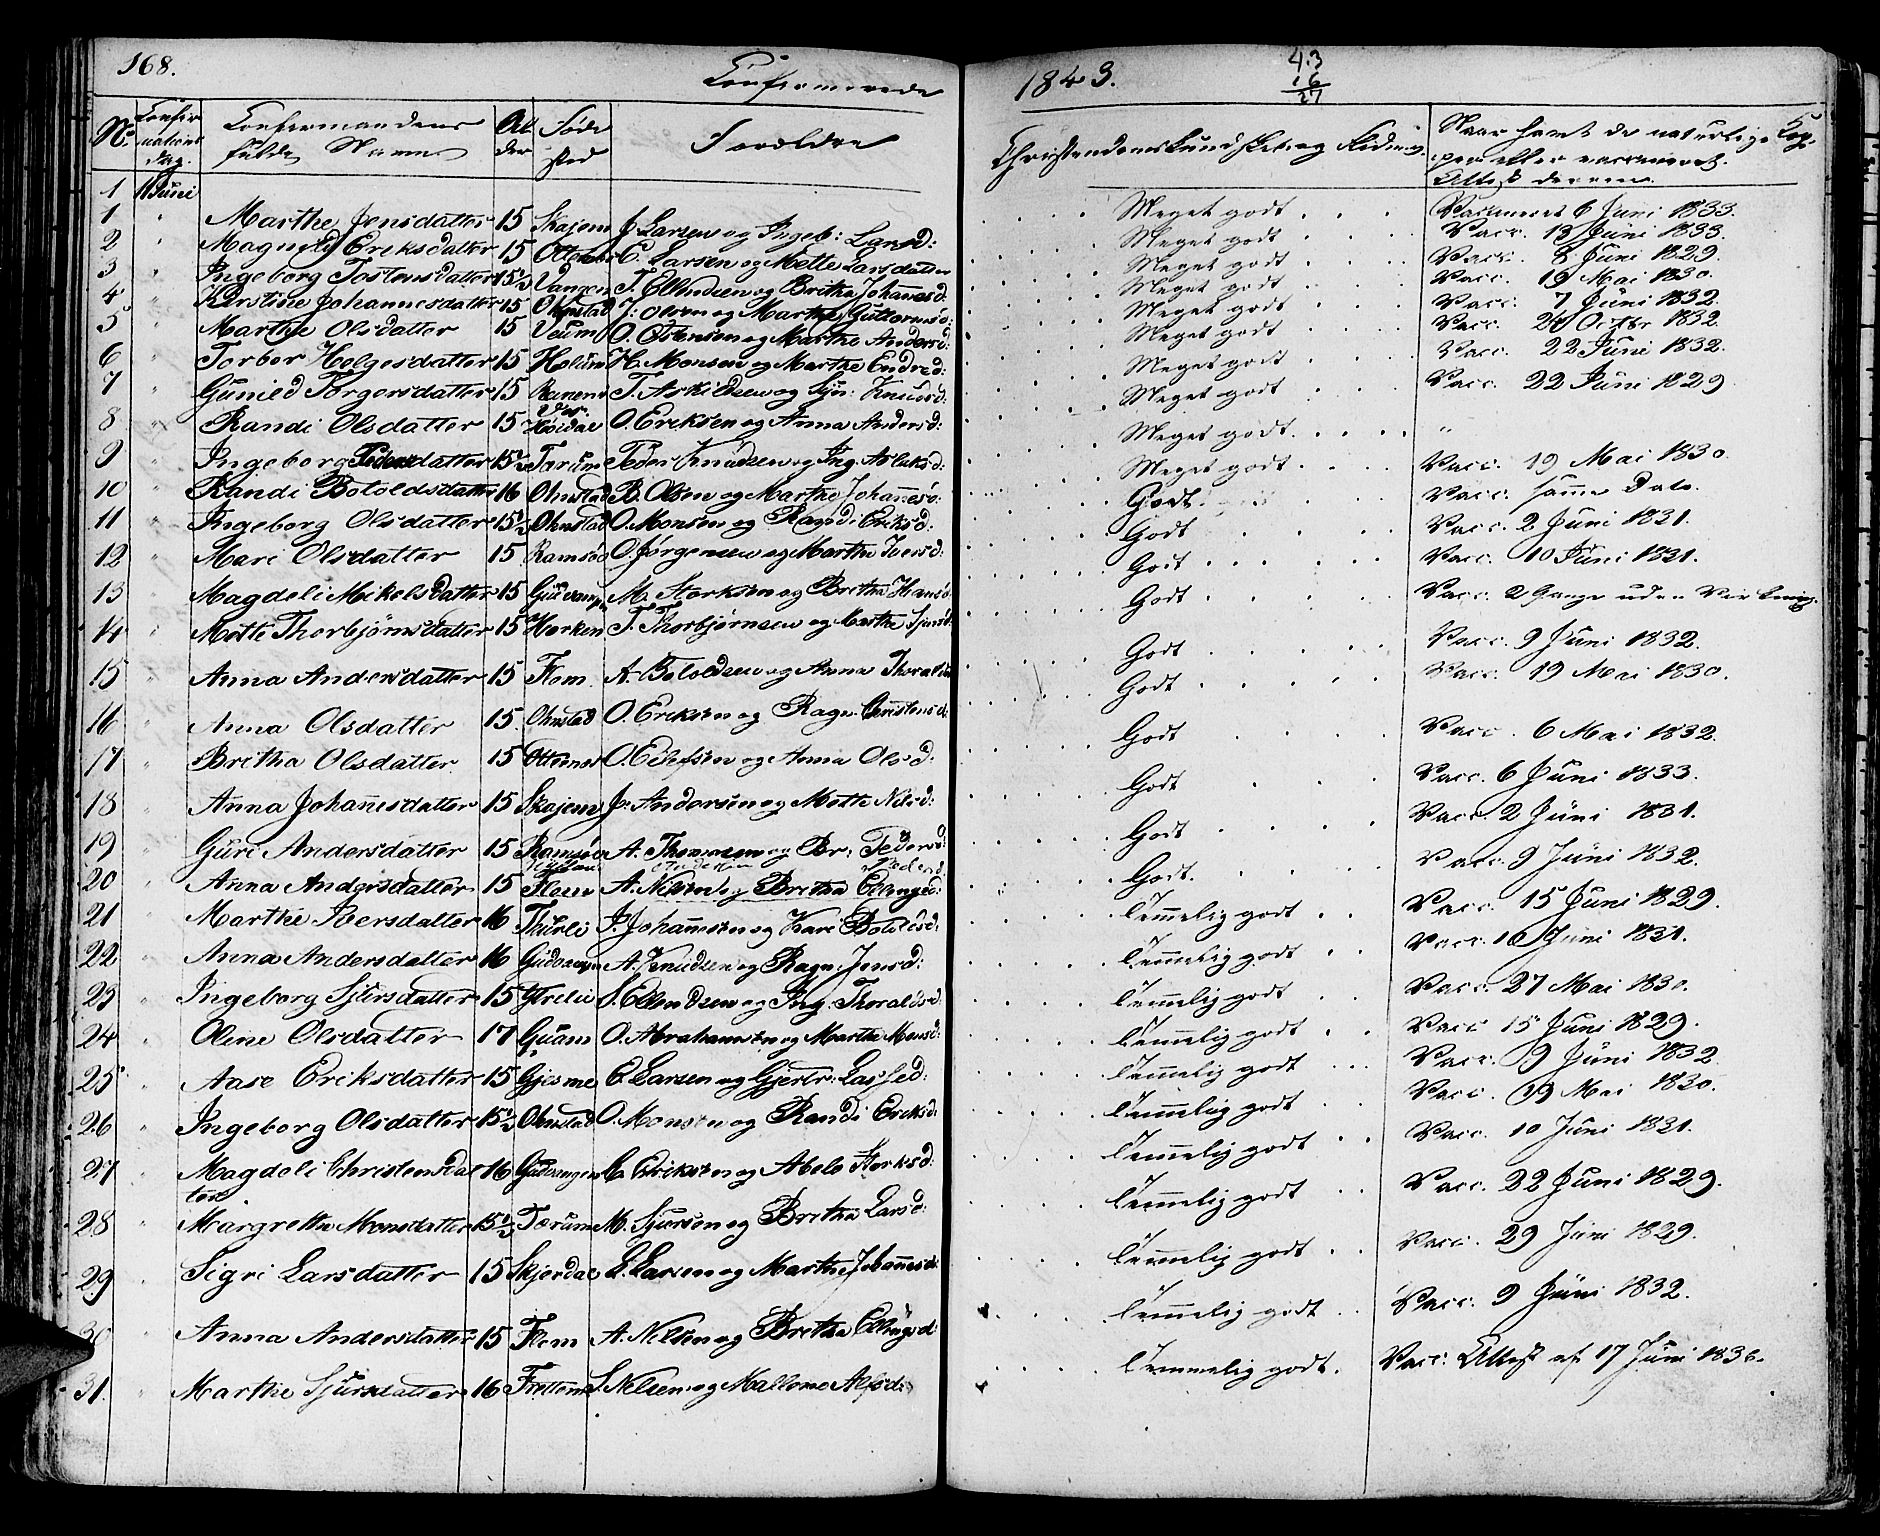 168.
Confirmerede
1843.
43
16
27
No.
Confir
mations
Dag.
Confirmandens
fulde Navn
Al
der
Føde
sted
Forældre
Christendomskundskab og Flid
Naar havt de naturlige Kop
per eller vaccineret.
Attest derom
1 Juni
1 " Marthe Jensdatter 15 Skajem J. Larsen og Ingeb: Larsd: Meget godt Vaccineret 6 Juni 1833.
2 " Magnild Eriksdatter 15 Otternes E. Larsen og Mette Larsdatter Meget godt Vacc. 13 Juni 1833.
3 " Ingeborg Tostensdatter 15½ Vangen T. Ellendsen og Britha Johannesd: Meget godt Vacc. 2 Juni 1829.
4 " Kirstine Johannesdatter 15 Ohnstad J: Olsen og Marthe Guttormsd: Meget godt Vacc. 19 Mai 1830.
5 " Marthe Olsdatter 15 Veum O. Ostensen og Marthe Andersd: Meget godt Vacc. 7 Juni 1832.
6 " Torbor Helgesdatter 15 Holum H. Monsen og Marthe Endred: Meget godt Vacc. 24 Octbr 1832.
7 " Gunild Torgersdatter 15 T. Askildsen og Syn: Knudsd: Meget godt Vacc. 22 Juni 1832.
8 " Randi Olsdatter 15 Høidal O. Eriksen og Anna Andersd: Meget godt Vacc. 22 Juni 1829
9 " Ingeborg Pedersdatter 15½ Tærum Peder Knudsen og Ing. Aslaksd: Meget godt. "
10 " Randi Botoldsdatter 16 Ohnstad B. Olsen og Marthe Johanesd: Meget godt Vacc. 19 Mai 1830.
11 " Ingeborg Olsdatter 15½ Ohnstad O. Monsen og Randi Eriksd: Godt. Vacc. samme Dato.
12 " Mari Olsdatter 15 Ramsøe O. Jørgensen og Marthe Iversd: Godt Vacc. 2 Juni 1831.
13 " Magdeli Mikelsdatter 15 Gudvangen M. Storksen og Britha Hansd: Godt Vacc. 10 Juni 1831.
14 " Mette Thorbjørnsdatter 15 Horken T. Thorbjørnsen og Marthe Sjursd: Godt Vacc. 2 Gange uden Virkning.
15 " Anna Andersdatter 15 Flom. A. Botoldsen og Anna Godt Vacc. 9 Juni 1832.
16 " Anna Olsdatter 15. Ohnstad O. Eriksen og Ragn. Christensd: Godt Vacc. 19 Mai 1830.
17 " Britha Olsdatter 15 Otternes O. Ellefsen og Anna Olsd: Godt Vacc. 6 Mai 1832.
18 " Anna Johanesdatter 15 Skajem J: Andersen og Mette Nilsd: Godt Vacc. 6 Juni 1833.
19 " Guri Andersdatter 15 Ramsøen A. Thomassen og Br: Pedersd: Godt Vacc. 2 Juni 1831.
20 " Anna Andersdatter 15 Flom A. Nilsen og Britha Ellingsd: Godt. Vacc. 9 Juni 1832.
21 " Marthe Iversdatter 16 Thurli I. Johannesen og Kari Botoldsd: Temmelig godt Vacc. 15 Juni 1829.
22 " Anna Andersdatter 16 Gudvangen A. Knudsen og Ragn. Jensd: Temmelig godt Vacc. 10 Juni 1831.
23 " Ingeborg Sjursdatter 15 S. Ellendsen og Ing. Thoraldsd: Temmelig godt Vacc. 27 Mai 1830.
24 " Oline Olsdatter 17 Guam O. Abrahamsen og Marthe Monsd: Temmelig godt Vacc 15 Juni 1829.
25 " Aase Eriksdatter 15 Gjesme E. Larsen og Gjertr. Lassed: Temmelig godt Vacc. 9 Juni 1832
26 " Ingeborg Olsdatter 15½ Ohnstad O. Monsen og Randi Eriksd: Temmelig godt Vacc. 19 Mai 1830.
27 " Magdeli Christensdat
ter 16 Gudvangen C. Eriksen og Abelo Storksd: Temmelig godt Vacc. 10 Juni 1831.
28 " Margrethe Monsdatter 15½ Tærum M. Sjursen og Britha Larsd: Temmelig godt Vacc. 22 Juni 1829.
29 " Sigri Larsdatter 15 Skjerdal L. Larsen og Marthe Johannesd: Temmelig godt Vacc. 29 Juni 1829.
30 " Anna Andersdatter 15 Flom A. Nilsen og Britha Ellingsd: Temmelig godt Vacc. 9 Juni 1832.
31. " Marthe Sjursdatter 16 Frettem S. Nilsen og Mallene Alfsd: Temmelig godt. Vacc: Attest af 17 Juni 1836.